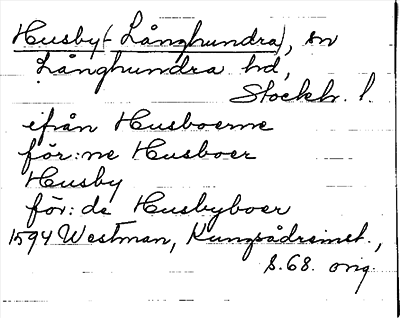 Husby (- Långhundra), sn
Långhundra hd,
Stockh. l.
ifrån Husboerne
för: ne Husboer
Husby
för: de Husbyboer
1594 Westman, Kungsådreinst.,
S. 68. orig.